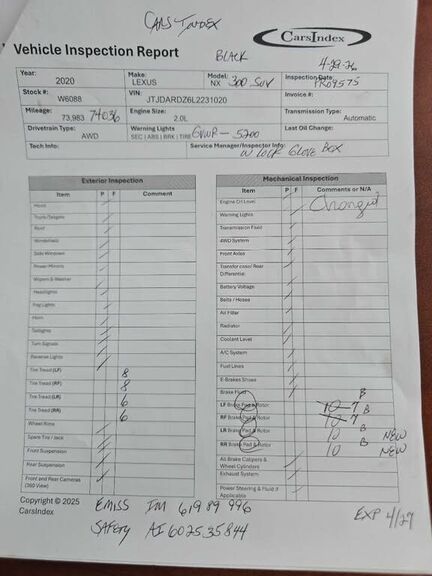 CARS INDEX
CarsIndex
Vehicle Inspection Report
BLACK
4-29-26
Year: 2020
Make: LEXUS
Model: NX 300 SUV
Inspection Date:
Stock #: W6088
VIN: JTJDARDZ6L2231020
Invoice #:
Mileage: 73,983 74036
Engine Size: 2.0L
Transmission Type: Automatic
Drivetrain Type: AWD
Warning Lights
SEC | ABS | BRK | TIRE GVWR - 5200
Last Oil Change:
Tech Info:
Service Manager/Inspector Info:
W LOCK GLOVE BOX
Exterior Inspection
Item P F Comment
Hood
Trunk/Tailgate
Roof
Windshield
Side Windows
Power Mirrors
Wipers & Washer
Headlights
Fog Lights
Horn
Taillights
Turn Signals
Reverse Lights
Tire Tread (LF) 8
Tire Tread (RF) 8
Tire Tread (LR) 6
Tire Tread (RR) 6
Wheel Rims
Spare Tire / Jack
Front Suspension
Rear Suspension
Front and Rear Cameras
(360 View)
Mechanical Inspection
Item P F Comments or N/A
Engine Oil Level Changed
Warning Lights
Transmission Fluid
4WD System
Front Axles
Transfer case/ Rear
Differential
Battery Voltage
Belts / Hoses
Air Filter
Radiator
Coolant Level
A/C System
Fuel Lines
E-Brakes Shoes
Brake Fluid
LF Brake Pad & Rotor 10 7 B
RF Brake Pad & Rotor 10 7 B
LR Brake Pad & Rotor 10 B NEW
RR Brake Pad & Rotor 10 B NEW
All Brake Calipers &
Wheel Cylinders
Exhaust System
Power Steering & Fluid if
Applicable
Copyright © 2025
CarsIndex
EMISS IM 61989996
SAFETY AI 602535844
EXP 4/27